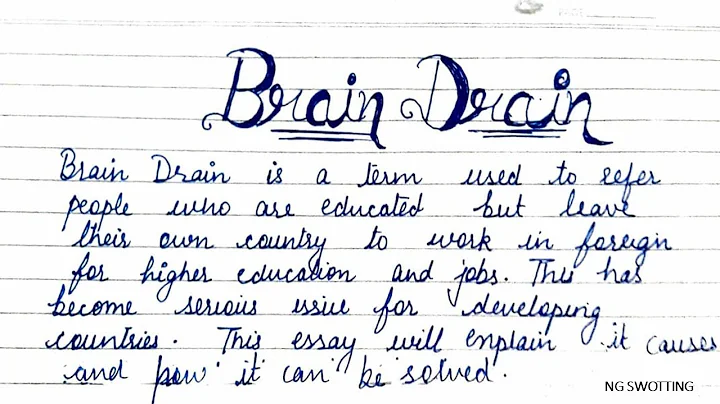 Brain Drain
Brain Drain is a term used to refer
people who are educated but leave
their own country to work in foreign
for higher education and jobs. This has
become serious issue for developing
countries. This essay will explain it causes
and how it can be solved.
NG SWOTTING